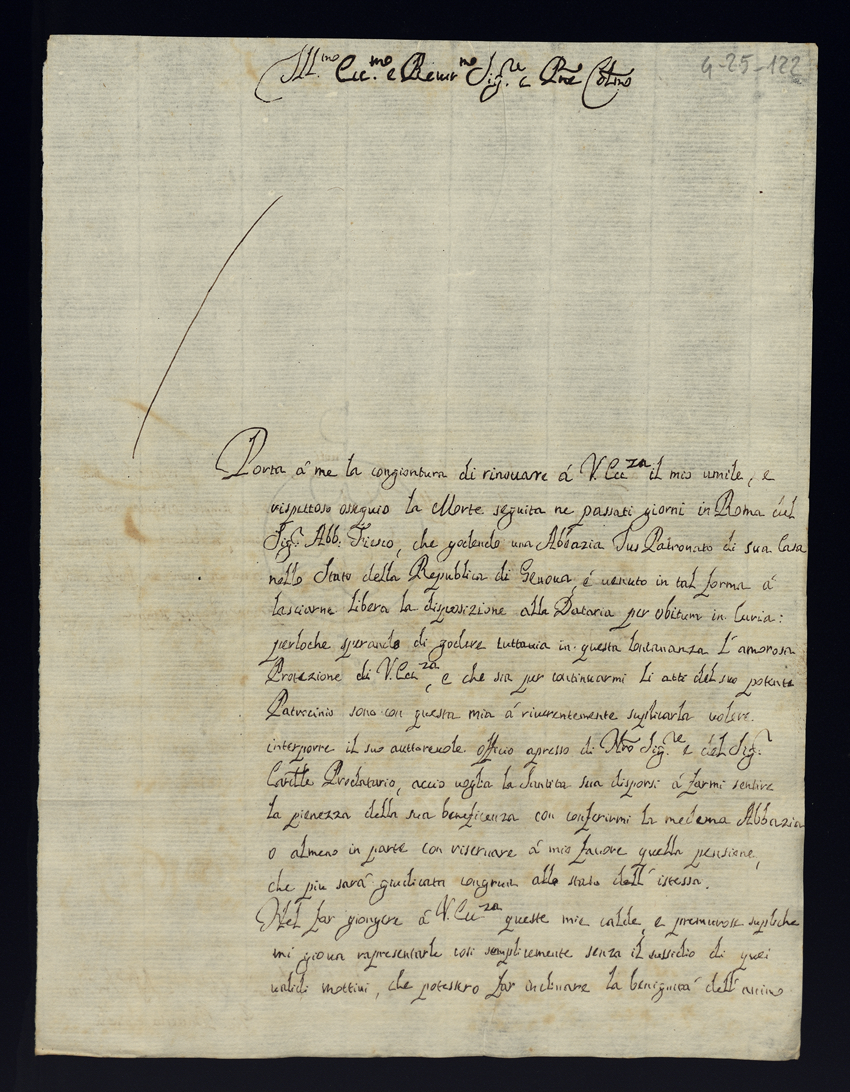 Ill.mo Ecc.mo e Reuer.mo Sig.re e Prne Col.mo
4-25-122
Porta á me la congiontura di rinouare á V. Ecc.za il mio umile, e
rispettoso osseguio la Morte seguita ne passati giorni in Roma del
Sig.r Abb. Fiesco, che godendo una Abbazia Jus Patronato di sua Casa
nello Stato della Republica di Genoua, é uenuto in tal forma á
lasciarne libera la disposizione alla Dataria per obitum in Curia:
perloche sperando di godere tuttauia in questa lontananza l'amorosa
Protezione di V. Ecc.za, e che sia per continuarmi li atti del suo potente
Patrocinio sono con questa mia á riuerentemente suplicarla uolere
interporre il suo auttoreuole officio apresso di Nro Sig.re e del Sig.r
Card.le Prodatario, accio uoglia la Santita sua disporsi á farmi sentire
la pienezza della sua beneficenza con conferirmi la medema Abbazia
o almeno in parte con riseruare á mio fauore quella pensione,
che piu sará giudicata congrua allo stato dell'istessa.
Nel far giongere á V. Ecc.za queste mie calde, e premurose supliche
mi gioua rapresentarle cosi semplicemente senza il sussidio di quei
ualidi mottiui, che potessero far inclinare la benignitá dell'animo